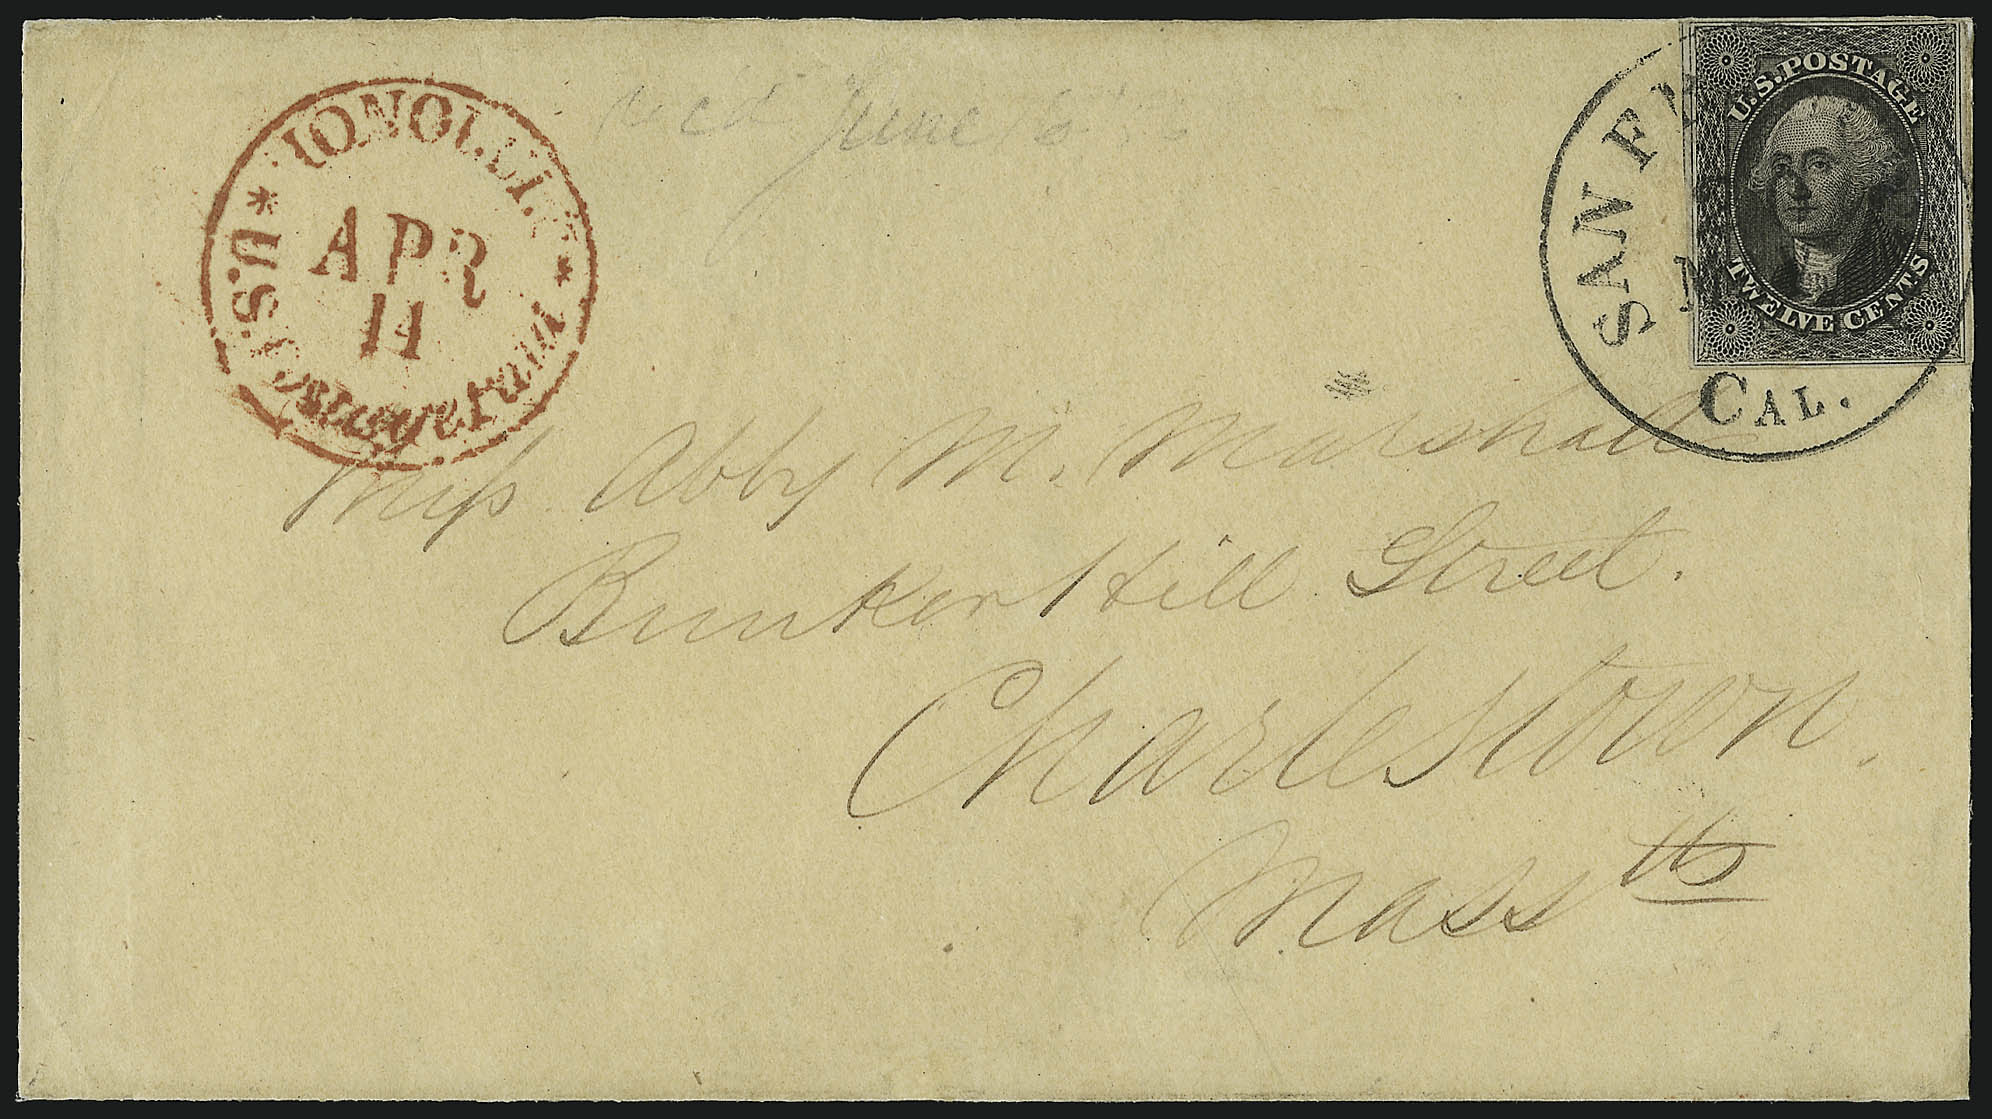 HONOLULU
* U.S. Postage Paid *
APR
11
recd June 6
U.S. POSTAGE
TWELVE CENTS
SAN FRAN
CAL.
Miss Abby M. Marshall
Bunker Hill Street.
Charlestown.
Mass tts